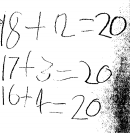 18+12=20
17+3=20
16+4=20